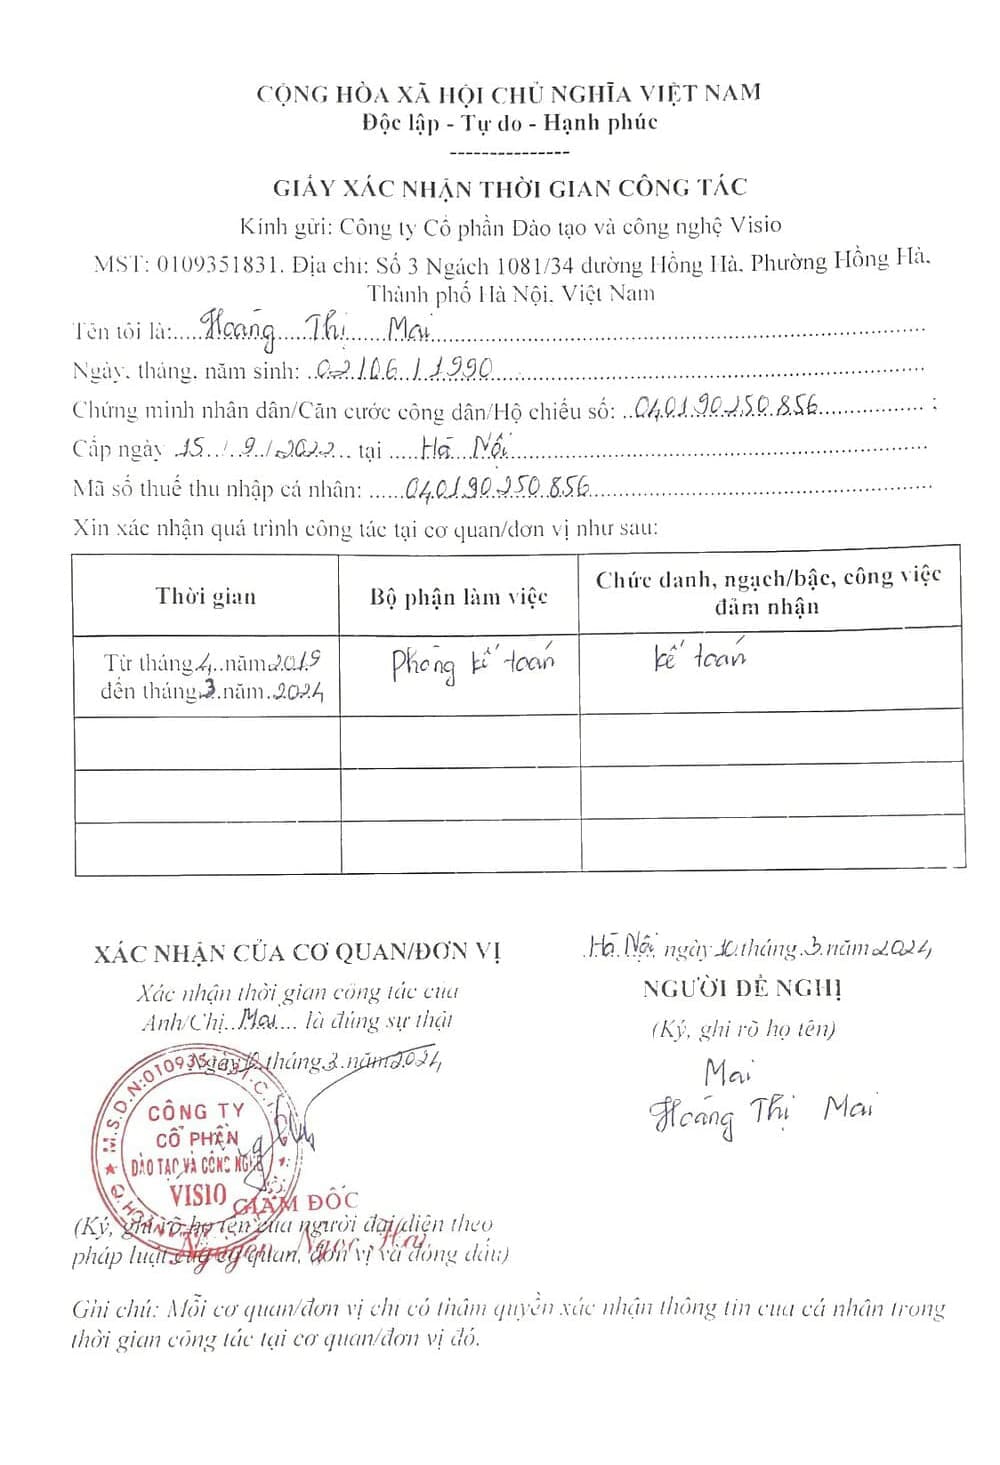 CỘNG HÒA XÃ HỘI CHỦ NGHĨA VIỆT NAM
Độc lập - Tự do - Hạnh phúc
---------------
GIẤY XÁC NHẬN THỜI GIAN CÔNG TÁC
Kính gửi: Công ty Cổ phần Đào tạo và công nghệ Visio
MST: 0109351831. Địa chỉ: Số 3 Ngách 1081/34 đường Hồng Hà, Phường Hồng Hà,
Thành phố Hà Nội, Việt Nam
Tên tôi là: Hoàng Thị Mai
Ngày, tháng, năm sinh: 02/06/1990
Chứng minh nhân dân/Căn cước công dân/Hộ chiếu số: 040190250856 ;
Cấp ngày 15/9/2022 tại Hà Nội
Mã số thuế thu nhập cá nhân: 040190250856
Xin xác nhận quá trình công tác tại cơ quan/đơn vị như sau:
Thời gian Bộ phận làm việc Chức danh, ngạch/bậc, công việc
đảm nhận
Từ tháng 4 năm 2019 Phòng kế toán kế toán
đến tháng 3 năm 2024
XÁC NHẬN CỦA CƠ QUAN/ĐƠN VỊ
Xác nhận thời gian công tác của
Anh/Chị Mai là đúng sự thật
Ngày 12 tháng 3 năm 2024
Hà Nội ngày 10 tháng 3 năm 2024
NGƯỜI ĐỀ NGHỊ
(Ký, ghi rõ họ tên)
Mai
Hoàng Thị Mai
M.S.D.N:0109351831-C.
CÔNG TY
CỔ PHẦN
ĐÀO TẠO VÀ CÔNG NGHỆ
VISIO
GIÁM ĐỐC
Nguyễn Ngọc Hải
(Ký, ghi rõ họ tên của người đại diện theo
pháp luật của cơ quan, đơn vị và đóng dấu)
Ghi chú: Mỗi cơ quan/đơn vị chỉ có thẩm quyền xác nhận thông tin của cá nhân trong
thời gian công tác tại cơ quan/đơn vị đó.